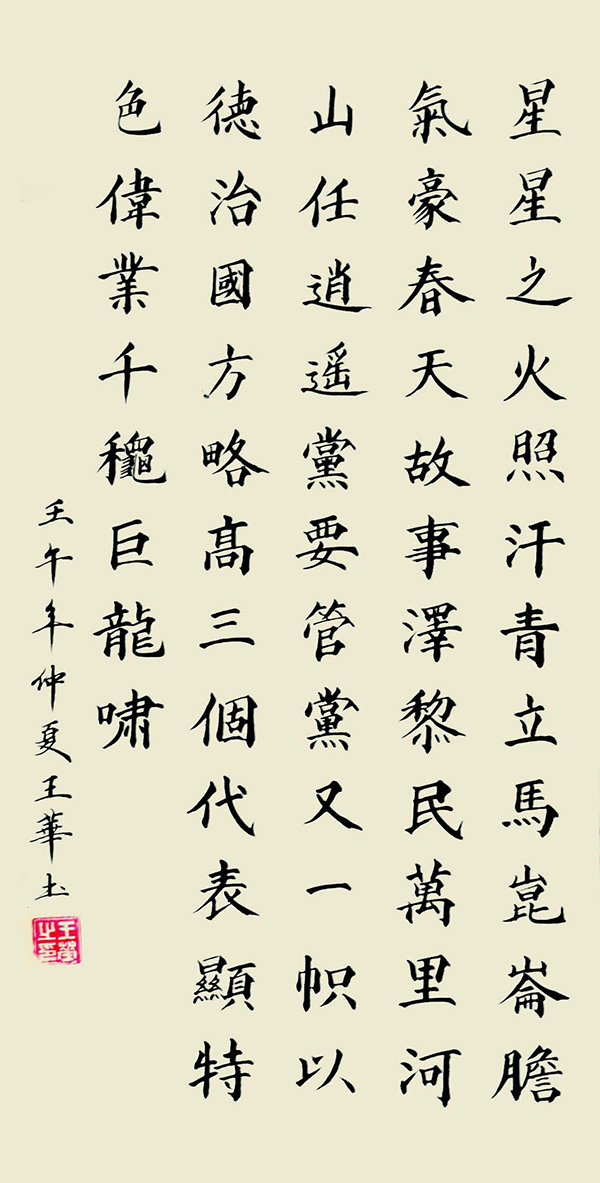 星星之火照汗青立馬崑崙膽
氣豪春天故事澤黎民萬里河
山任逍遥黨要管黨又一帜以
德治國方略高三個代表顯特
色偉業千龝巨龍啸
壬午年仲夏王華书
王華之印